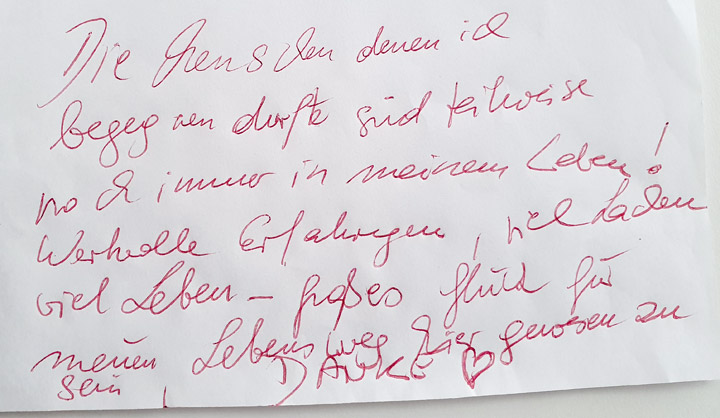 Die Menschen denen ich
begegnen durfte sind teilweise
noch immer in meinem Leben!
Wertvolle Erfahrungen, viel Lachen
viel Leben – großes Glück für
meinen Lebensweg hier gewesen zu
sein, DANKE ♡